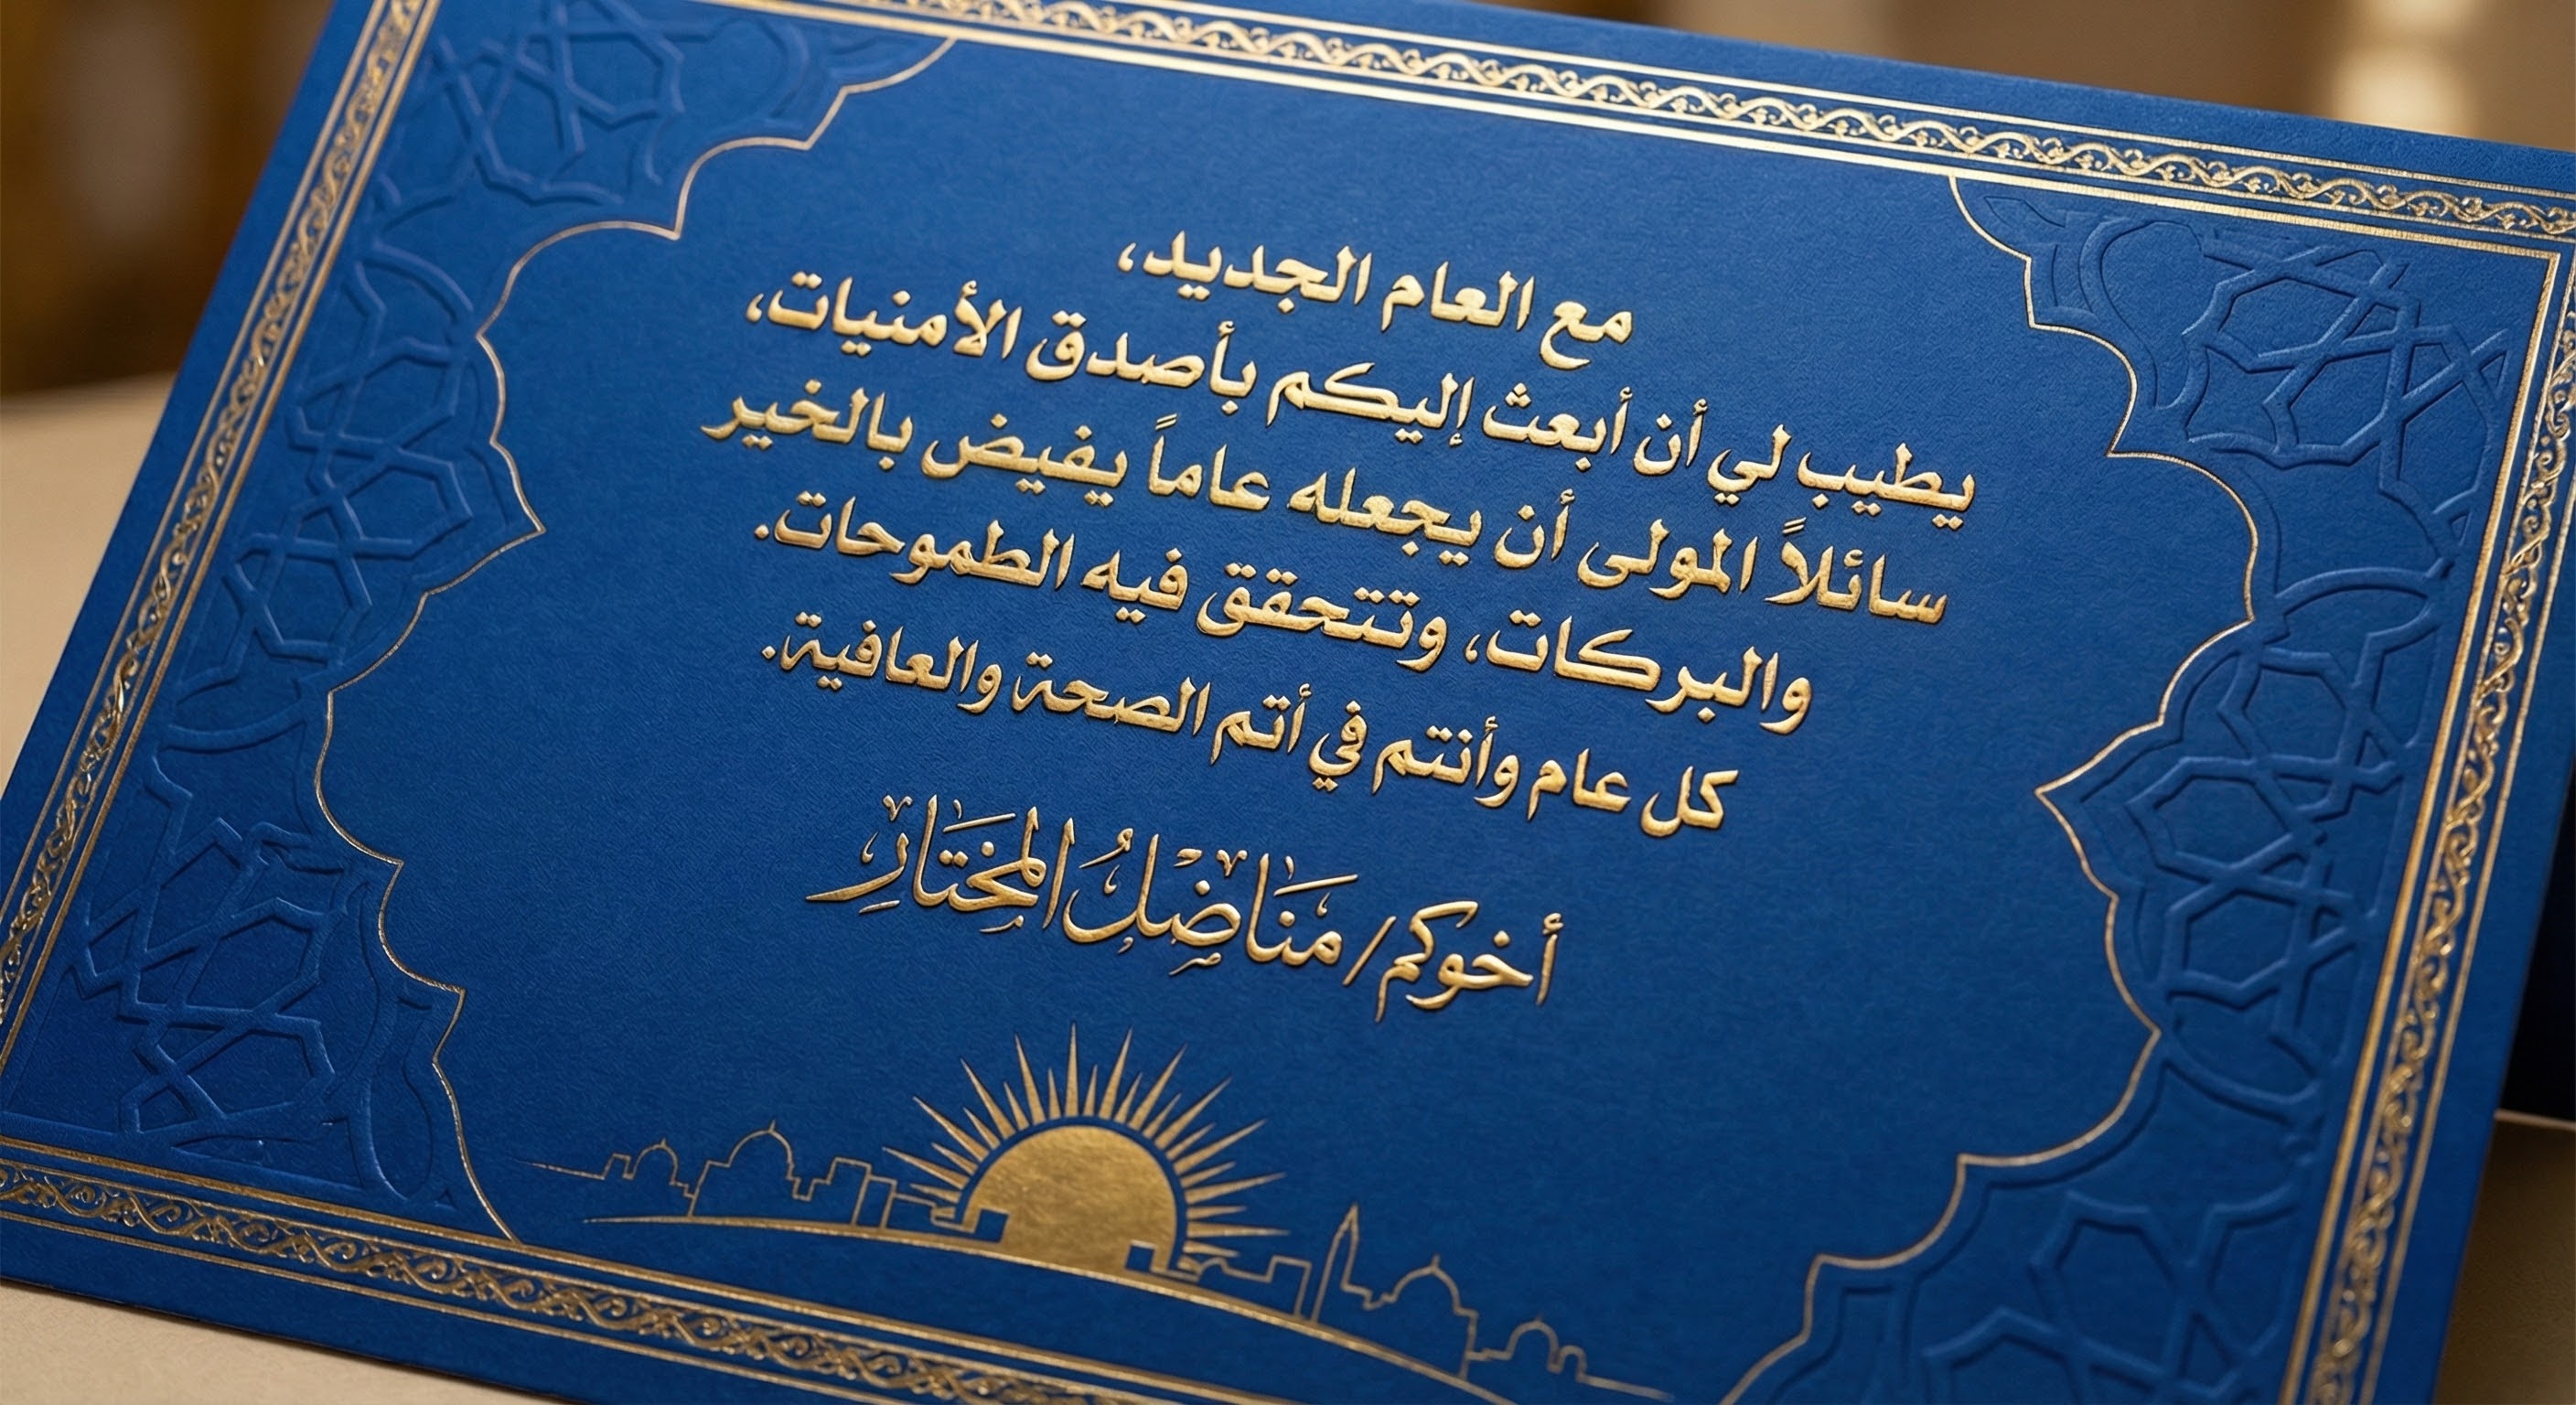 مع العام الجديد،
يطيب لي أن أبعث إليكم بأصدق الأمنيات،
سائلاً المولى أن يجعله عاماً يفيض بالخير
والبركات، وتتحقق فيه الطموحات.
كل عام وأنتم في أتم الصحة والعافية.
أخوكم/ مناضل المختار